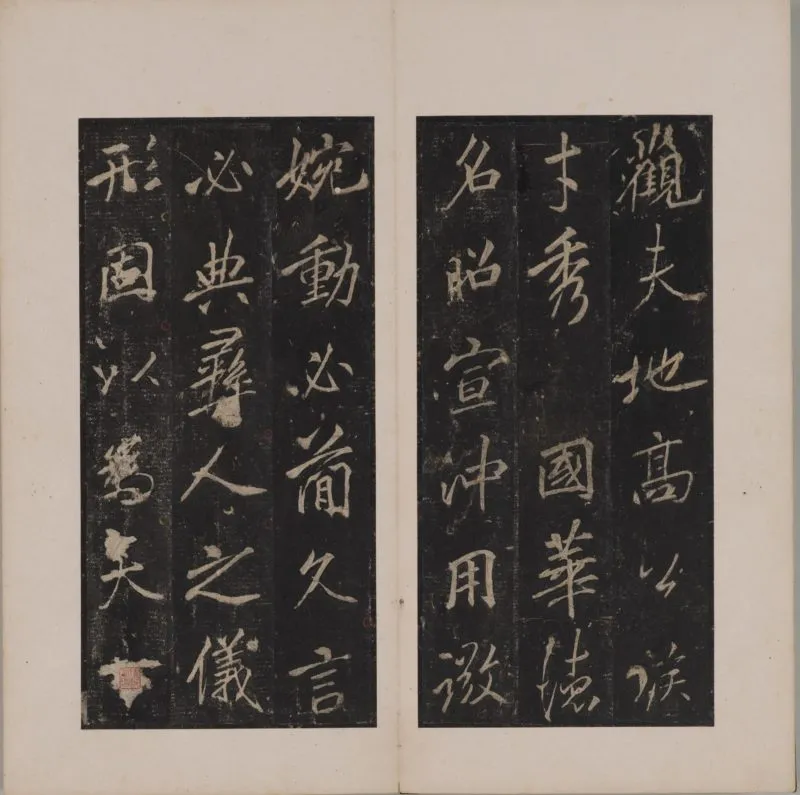 觀夫地高公族
才秀國華德
名昭宣沖用微
婉動必簡久言
必典彝人之儀
形固以矣